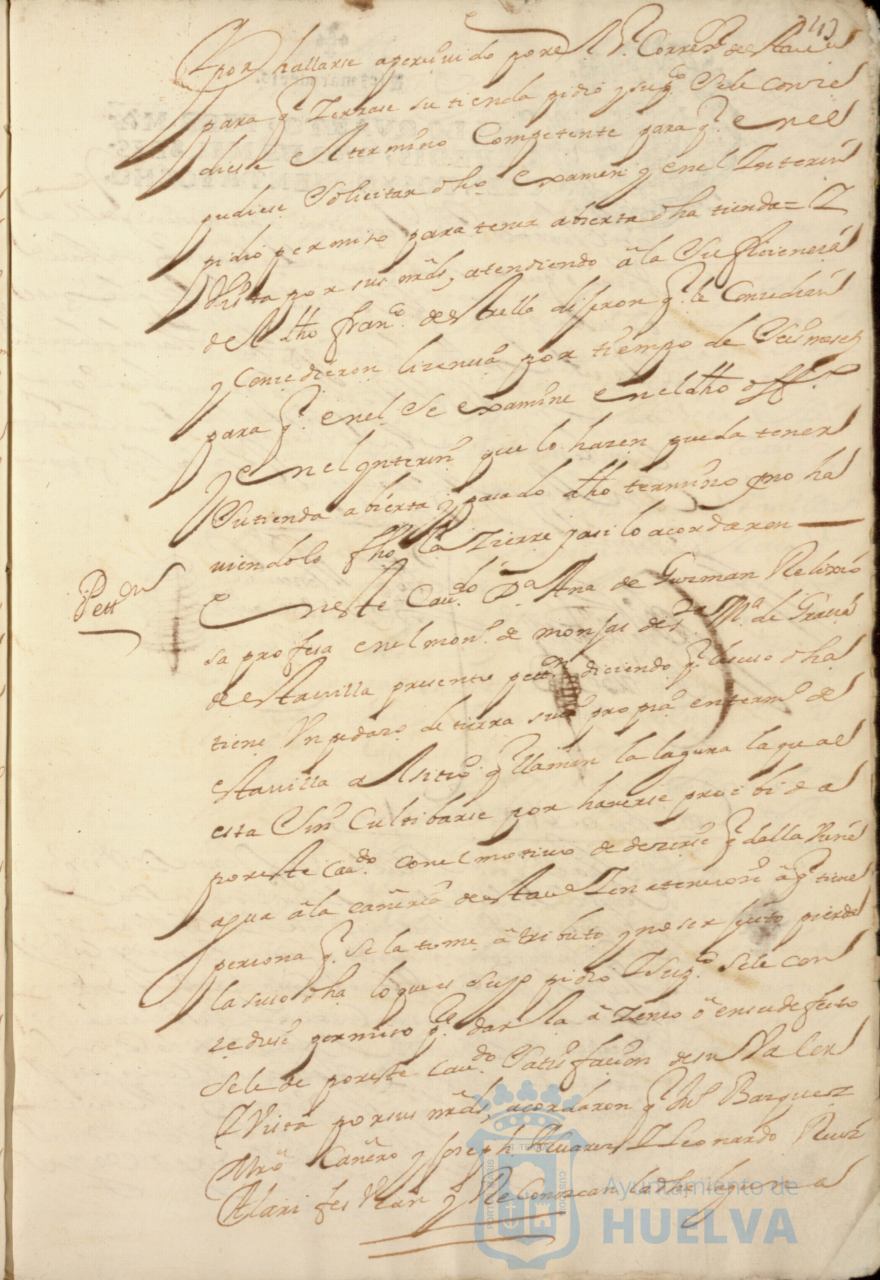 43
y por hallarse apersevido por el Sr. Correxr. de esta va.
para q. Zerrase su tienda pidio y supco. Se le conze
diese el termino Competente para q. en el
pudiese Solicitar dho. examen y en el Ynterin
pidio permiso para tener abierta dha tienda = Y
Vista por sus mrds, atendiendo â la Sufiziencia
de el dho franco. de estrella dixeron q. le Conzedian
y Conzedieron lizencia por tiempo de Seis meses
para q. en el Se examine en el dho offo.
y en el ynterin que lo haze pueda tener
Su tienda abierta y pasado dho termino y no ha
viendolo fho la Zierre y asi lo acordaron —
Petton
En este Cavdo. Da. Ana de Guzman Relixio
sa profesa en el mono. de monjas de Sta. Ma. de Gracia
de esta villa presento petton. diciendo q. la suso dha
tiene Un pedazo de tierra suio propio en termo. de
esta villa al sitio q. llaman la laguna la qual
esta Sin Cultibarse por haverse proibido
por este Cavdo. con el motivo de dezirse q. dalla Viene
agua â la cañeria de esta va. Y en atencion â q. tiene
persona q. se la tome â tributo y no ser justo pierda
la suso dha lo que es suyo pidio Y supco. Se le con
zediese permiso pa. darla â Zenso ô en su defecto
Se le de por este Cavdo. Satisfacion de su Valor
Y Vista por sus mrds, acordaron q. Bazquez
Mro. Cañero y Joseph Alvarez Y Leonardo Ruiz
Alarifes Vean y Reconozcan la dha laguna
Ayuntamiento de
HUELVA